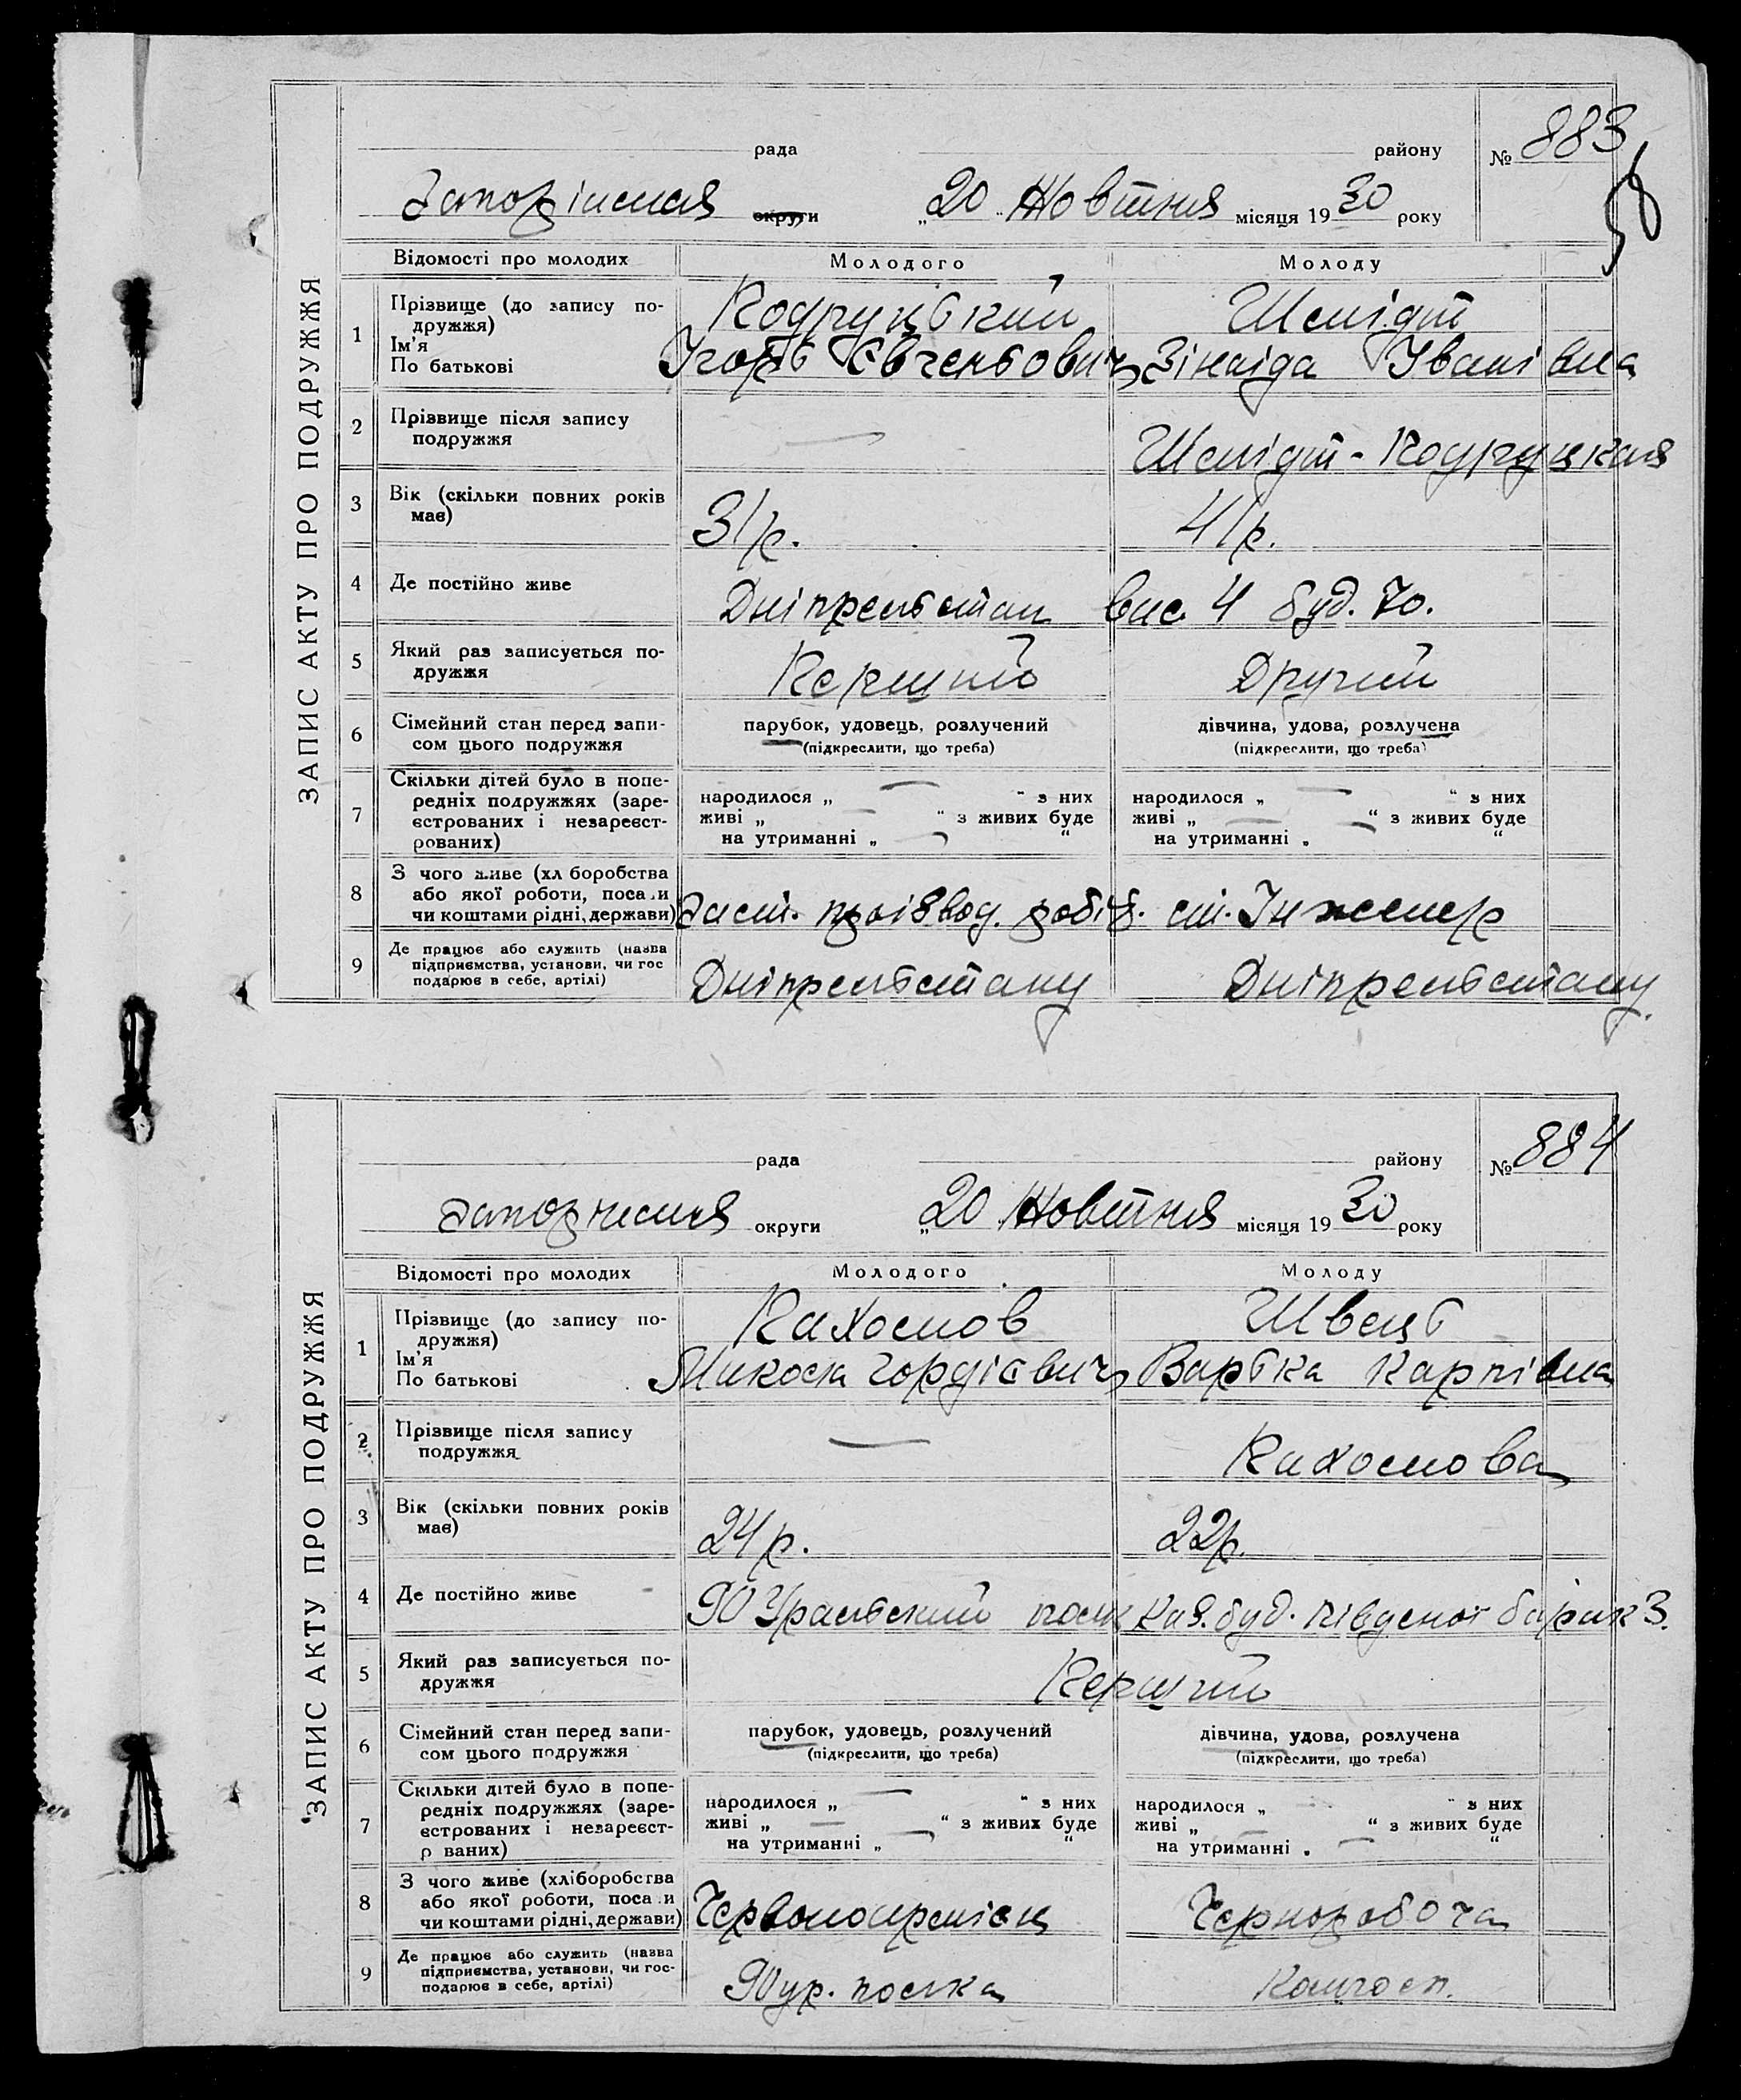 ЗАПИС АКТУ ПРО ПОДРУЖЖЯ
рада району № 883
округи „20“ Жовтня місяця 1930 року
Відомості про молодих Молодого Молоду
1 Прізвище (до запису подружжя) Кодруцький Шмідт
Ім'я
По батькові Ігорь Євгеньович Зінаїда Іванівна
2 Прізвище після запису подружжя — Шмідт-Кодруцкая
3 Вік (скільки повних років має) 31 р. 41 р.
4 Де постійно живе Дніпрельстан вис. 4 буд. 70.
5 Який раз записується подружжя Перший Другий
6 Сімейний стан перед записом цього подружжя парубок, удовець, розлучений дівчина, удова, розлучена
(підкреслити, що треба) (підкреслити, що треба)
7 Скільки дітей було в попередніх подружжях (зареєстрованих і незареєстрованих)
народилося „ — “ з них народилося „ — “ з них
живі „ — “ з живих буде живі „ — “ з живих буде
на утриманні „ — “ на утриманні „ “
8 З чого живе (хл боробства або якої роботи, поса и чи коштами рідні, держави) робіт. ст. Інженер
9 Де працює або служить (назва підприємства, установи, чи гос подарює в себе, артілі) Дніпрельстану Дніпрельстану.
ЗАПИС АКТУ ПРО ПОДРУЖЖЯ
рада району № 884
округи „20 Жовтня місяця 1930 року
Відомості про молодих Молодого Молоду
1 Прізвище (до запису подружжя) Швець
Ім'я
По батькові Микола Гордієвич Варька Карпівна
2 Прізвище після запису подружжя —
3 Вік (скільки повних років має) 24 р. 22 р.
4 Де постійно живе 90 Уральский полк буд. барак 3.
5 Який раз записується подружжя Перший
6 Сімейний стан перед записом цього подружжя парубок, удовець, розлучений дівчина, удова, розлучена
(підкреслити, що треба) (підкреслити, що треба)
7 Скільки дітей було в попередніх подружжях (зареєстрованих і незареєстр ваних)
народилося „ — “ з них народилося „ “ з них
живі „ — “ з живих буде живі „ — “ з живих буде
на утриманні „ — “ на утриманні „ — “
8 З чого живе (хліборобства або якої роботи, поса и чи коштами рідні, держави) Червоноармієц Чернорабоча
9 Де працює або служить (назва підприємства, установи, чи господарює в себе, артілі) 90 ур. полка